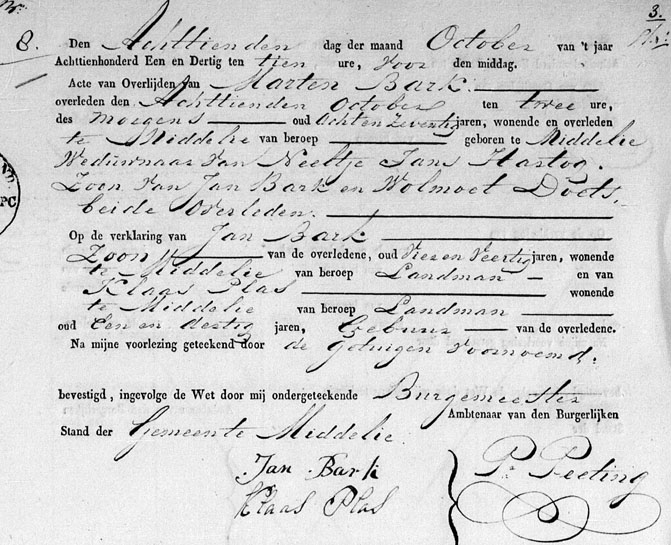 3.
8. Den Achttienden dag der maand October van 't jaar
Achttienhonderd Een en Dertig ten tien ure, voor den middag.
Acte van Overlijden Van Marten Bark:
overleden den Achttienden October ten twee ure,
des morgens oud Acht en Zeventig jaren, wonende en overleden
te Middelie van beroep geboren te Middelie
Weduwnaar Van Neeltje Jans Hartog.
Zoon Van Jan Bark en Wolmoet Doets
beide Overleden.
Op de verklaring van Jan Bark
Zoon van de overledene, oud Vier en Veertig jaren, wonende
te Middelie van beroep Landman en van
Klaas Plas wonende
te Middelie van beroep Landman
oud Een en dertig jaren, Gebuur van de overledene.
Na mijne voorlezing geteekend door de getuigen voornoemd.
bevestigd, ingevolge de Wet door mij ondergeteekende Burgemeester
Ambtenaar van den Burgerlijken
Stand der Gemeente Middelie.
Jan Bark
Klaas Plas
Pr. Peeting
PC